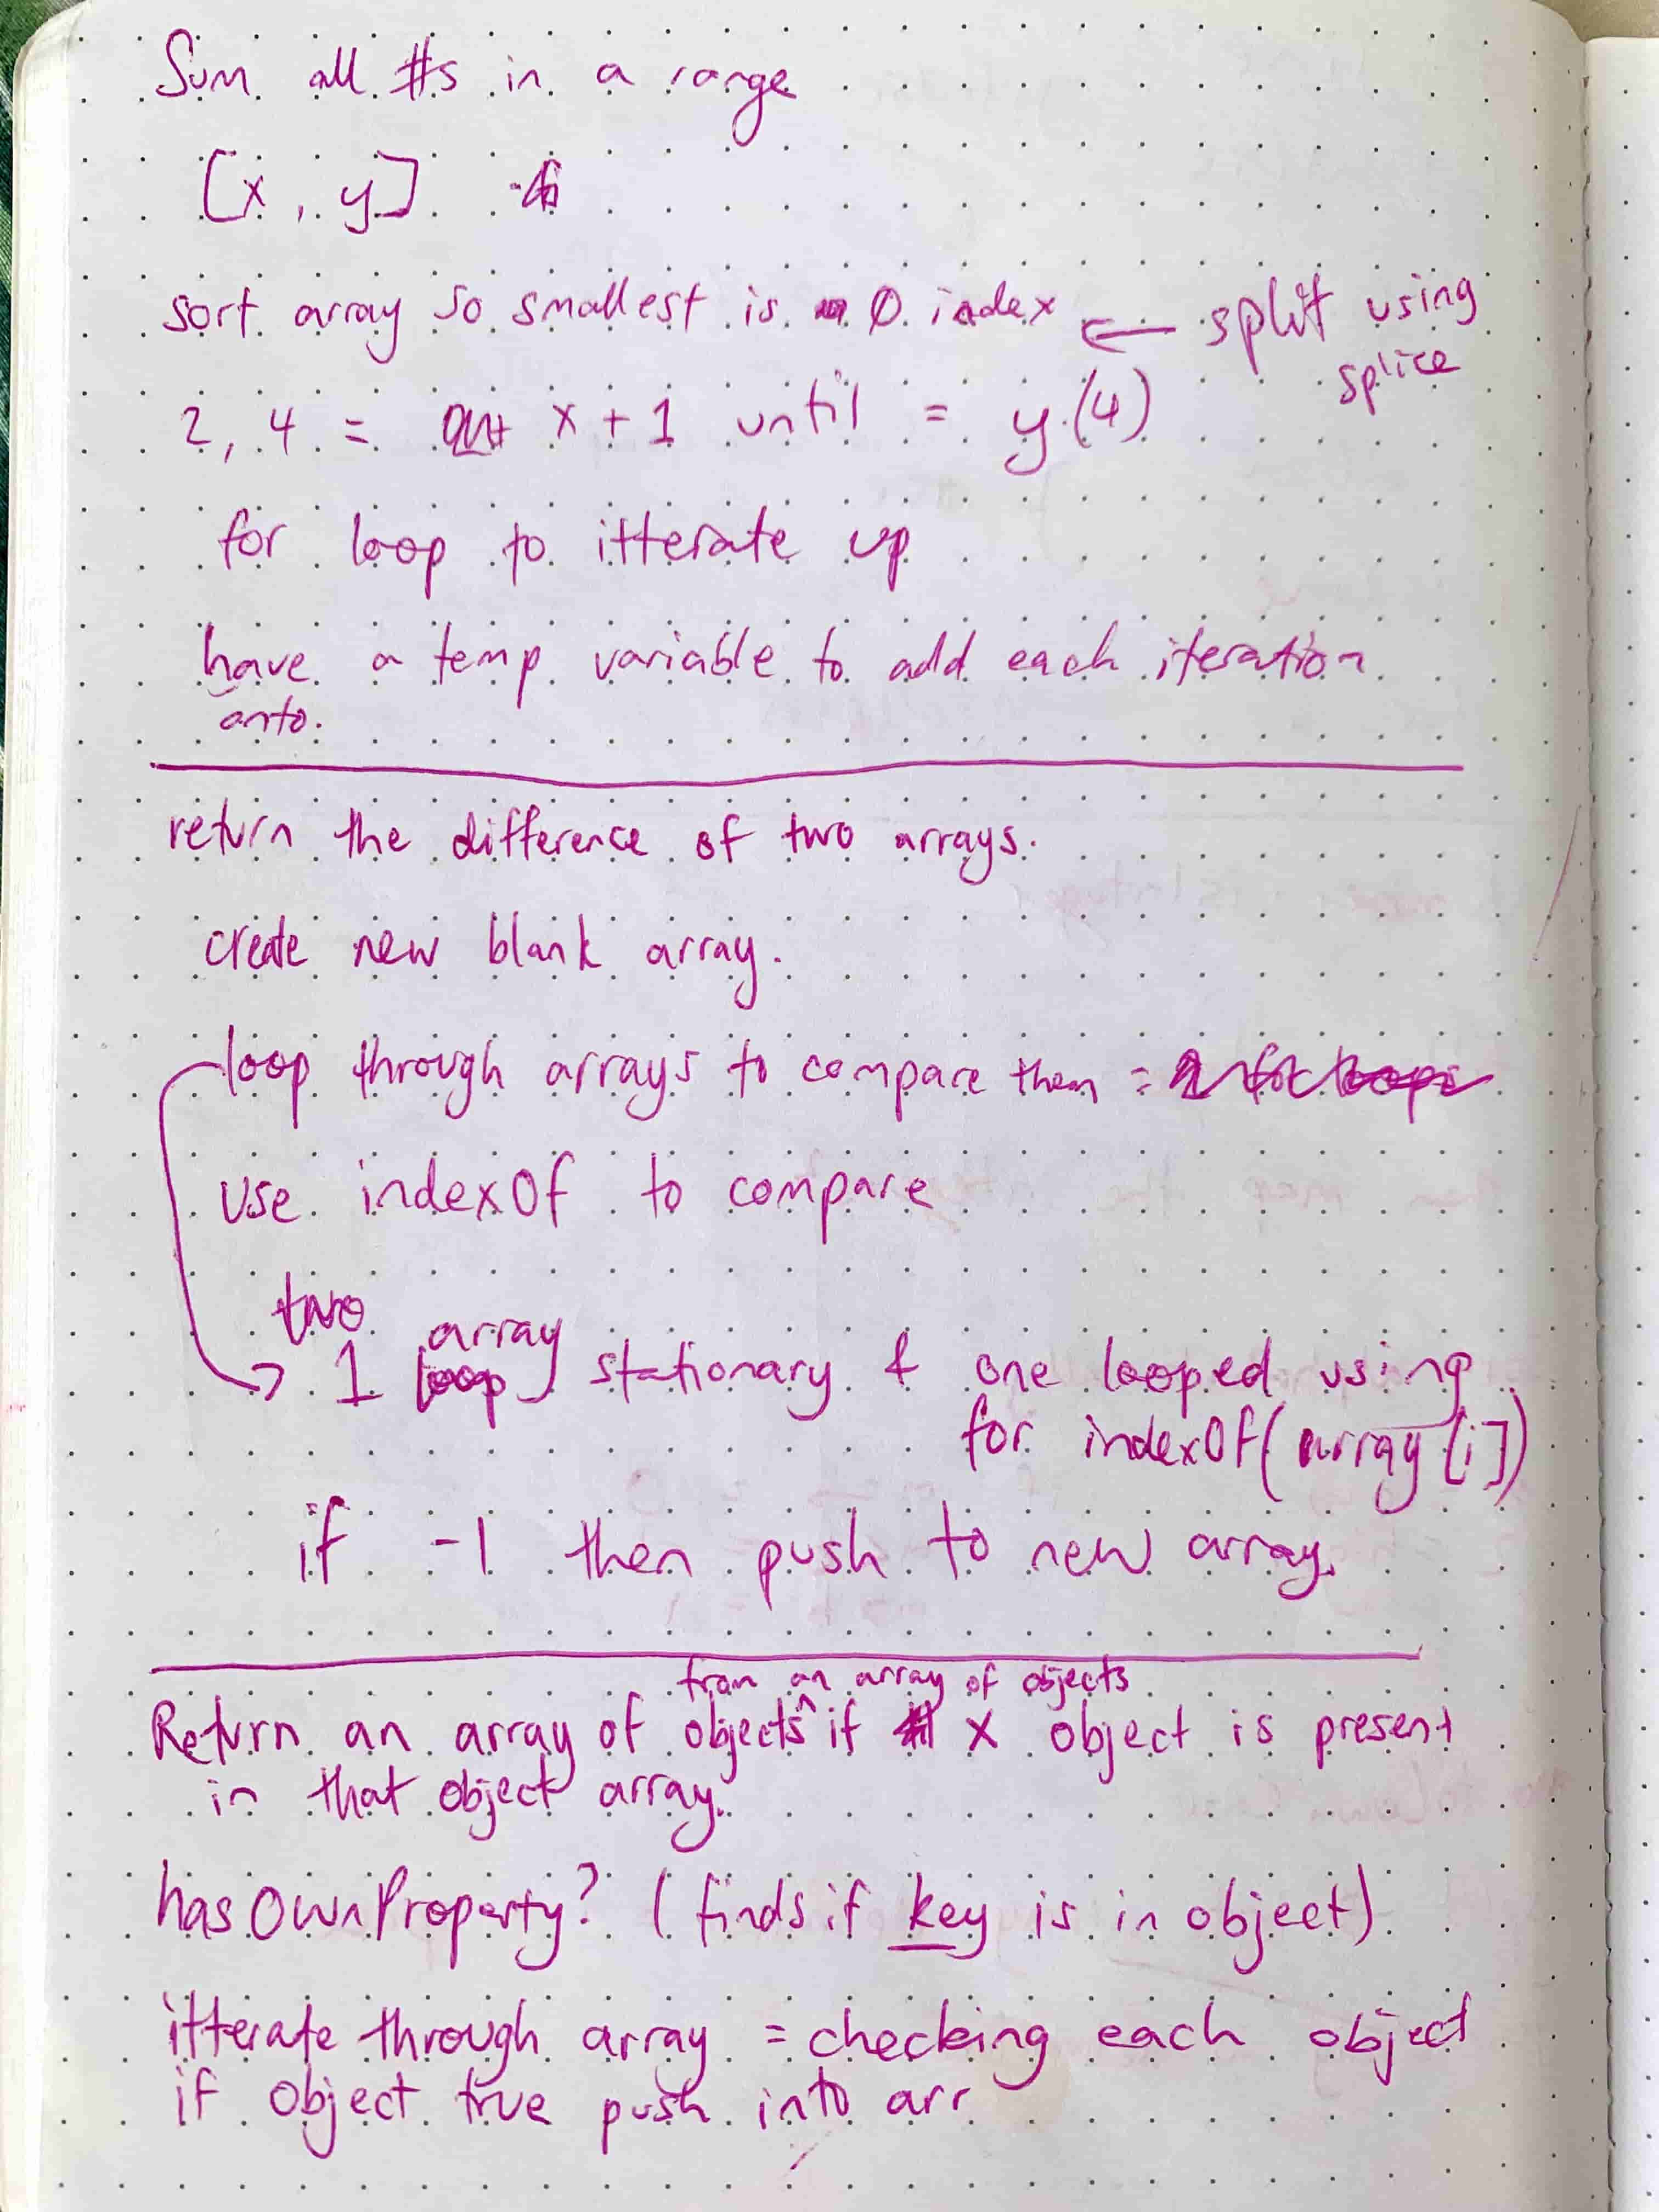 Sum all #s in a range
[x, y]
sort array so smallest is 0 index ← split using
splice
2, 4 = x + 1 until = y (4)
for loop to itterate up
have a temp variable to add each iteration
onto.
return the difference of two arrays.
create new blank array.
loop through arrays to compare them = 2 for loops
use indexOf to compare
two array
1 loop stationary & one looped using
for indexOf(array[i])
if -1 then push to new array.
from an array of objects
Return an array of objects ^ if x object is present
in that object array.
hasOwnProperty? (finds if key is in object)
itterate through array = checking each object
if object true push into arr